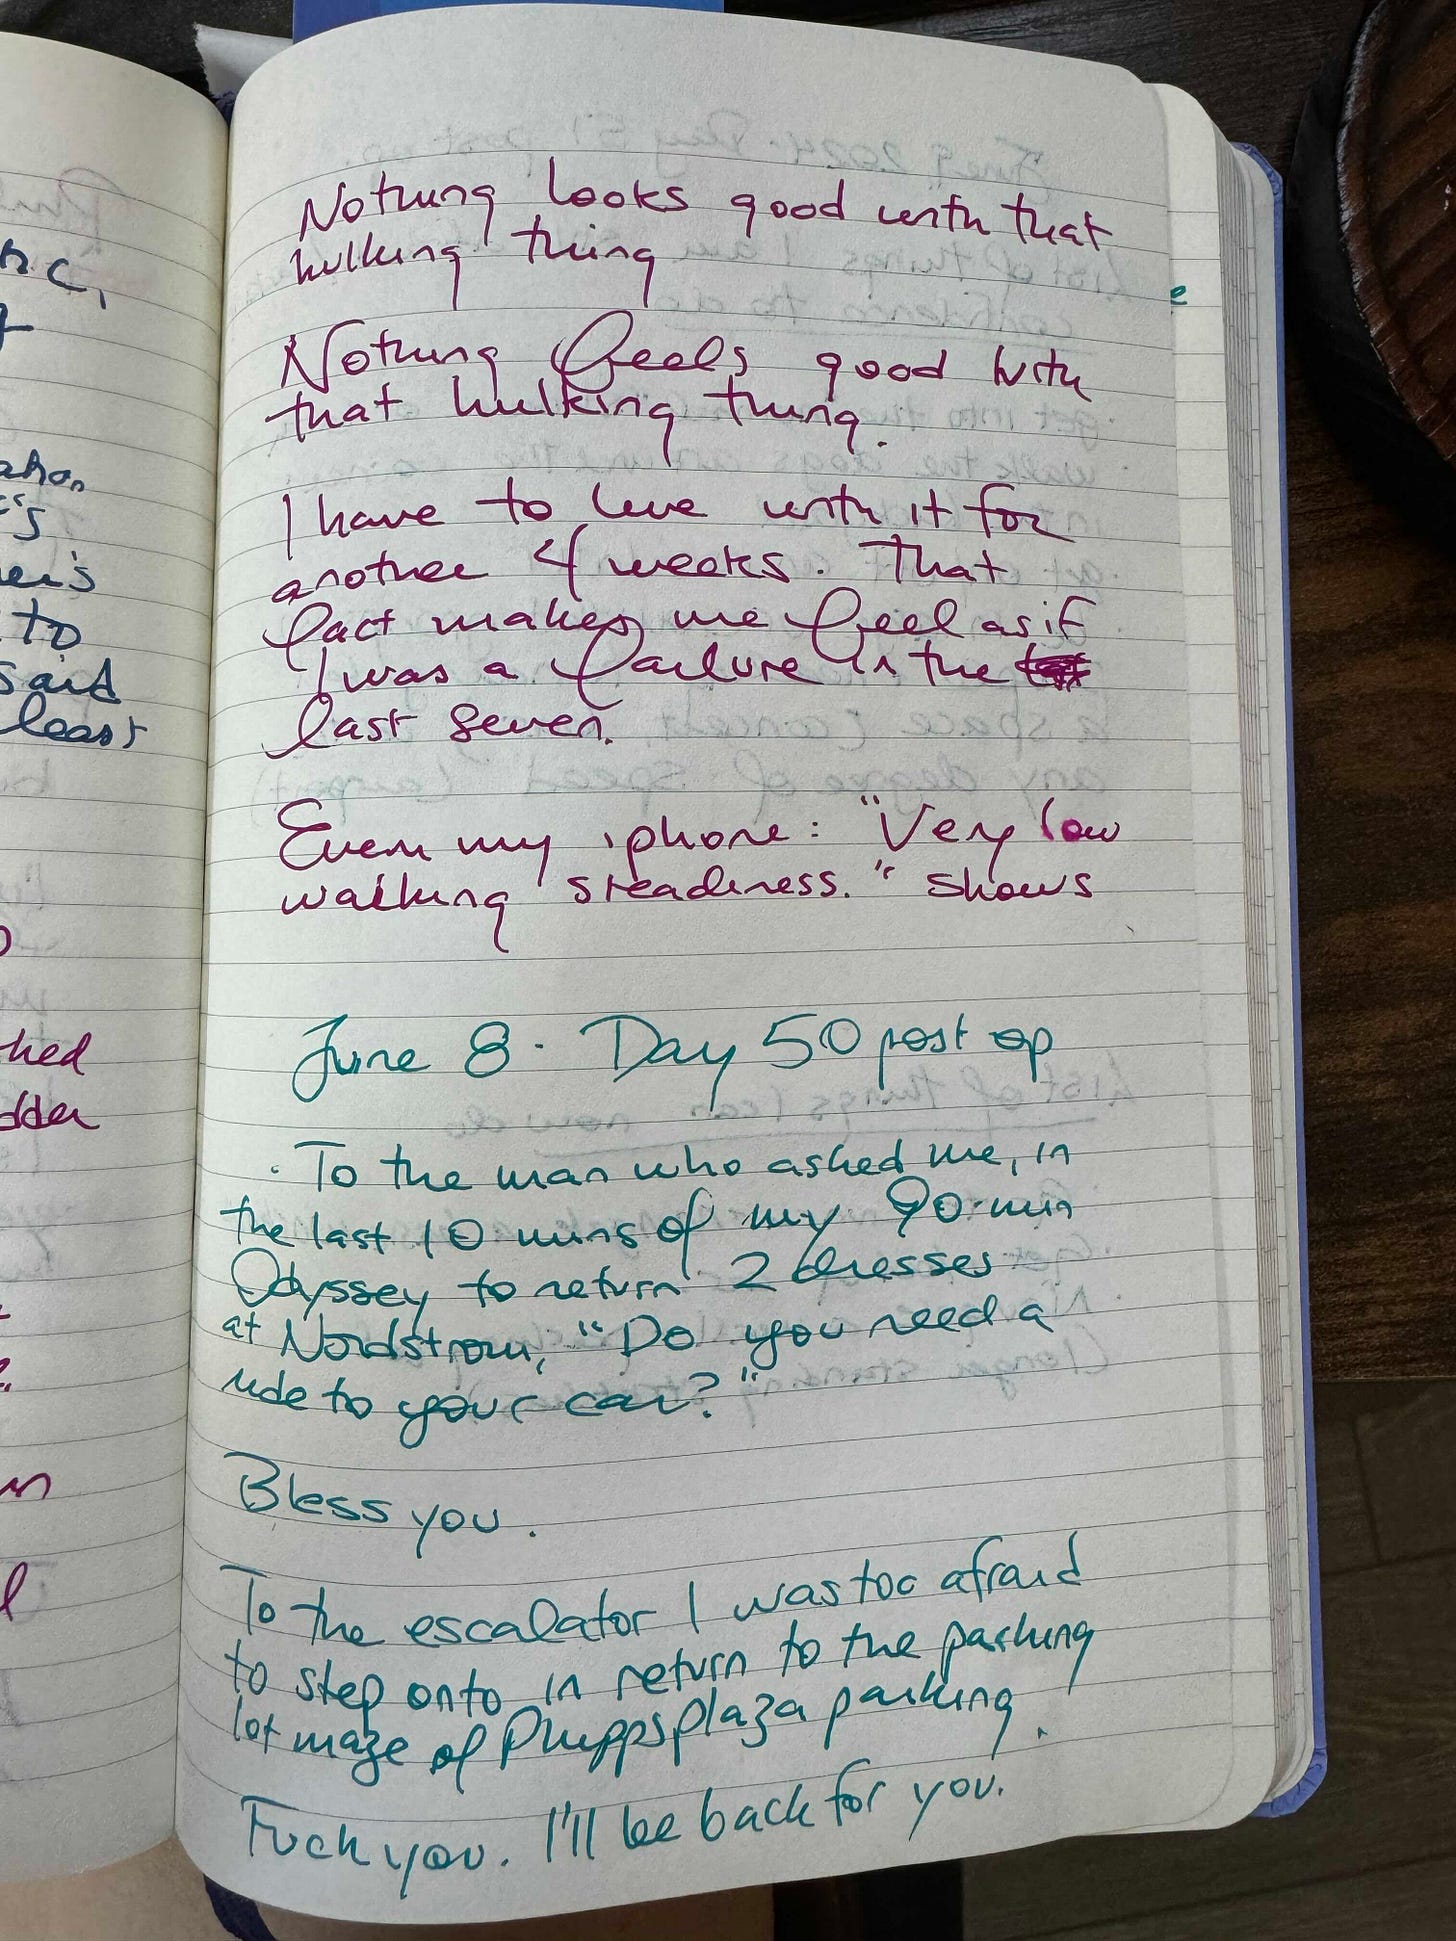 nc,
ahon
's
her's
to
said
least
hed
dder
Nothing looks good with that
hulking thing
Nothing feels good with
that hulking thing.
I have to live with it for
another 4 weeks. That
fact makes me feel as if
I was a failure in the
last seven.
Even my iphone: "Very low
walking steadiness." shows
June 8. Day 50 post op
. To the man who asked me, in
the last 10 mins of my 90-min
Odyssey to return 2 dresses
at Nordstrom, "Do you need a
ride to your car?"
Bless you.
To the escalator I was too afraid
to step onto in return to the parking
lot maze of Phipps plaza parking.
Fuck you. I'll be back for you.